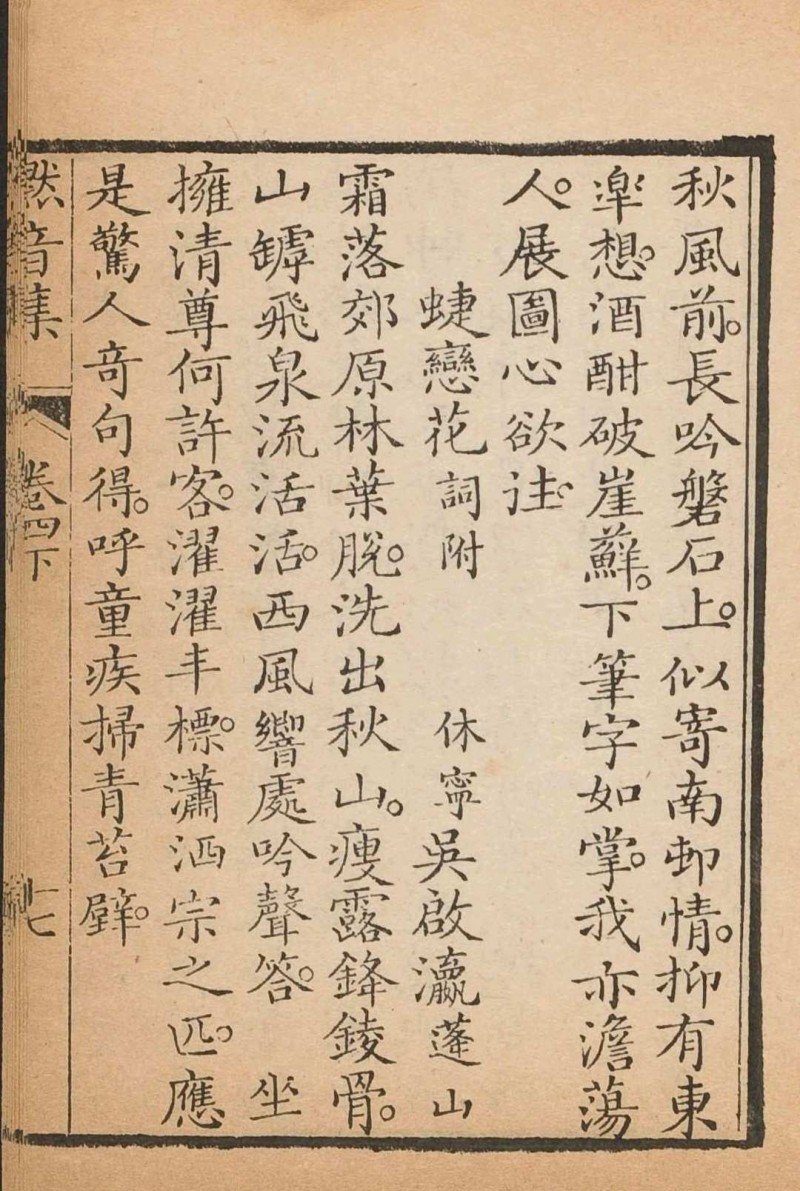 秋風前。長吟磐石上。似寄南邨情。抑有東
臯想。酒酣破崖蘚。下筆字如掌。我亦澹蕩
人。展圖心欲往。
蜨戀花 詞附 休寧吳啟瀛蓬山
霜落郊原林葉脫。洗出秋山。瘦露鋒錂骨。
山罅飛泉流活活。西風響處吟聲答。 坐
擁清尊何許客。濯濯丰標。瀟洒宗之匹。應
是驚人竒句得。呼童疾掃青苔壁。
卷四下 十七